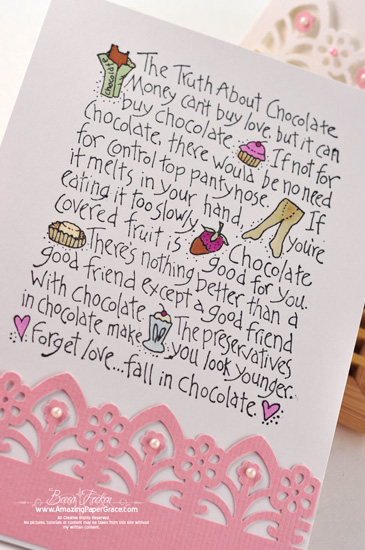 The Truth About Chocolate
Money can't buy love, but it can
buy chocolate. If not for
chocolate, there would be no need
for control top pantyhose.
it melts in your hand, If
eating it too slowly. you're
Chocolate
covered fruit is good for you.
There's nothing better than a
good friend except a good friend
with chocolate. The preservatives
in chocolate make you look younger.
Forget love...fall in chocolate.
chocolate
Becca Feeken
www.AmazingPaperGrace.com
All Creative Rights Reserved.
No pictures, tutorials or content may be taken from this site without
my written consent.